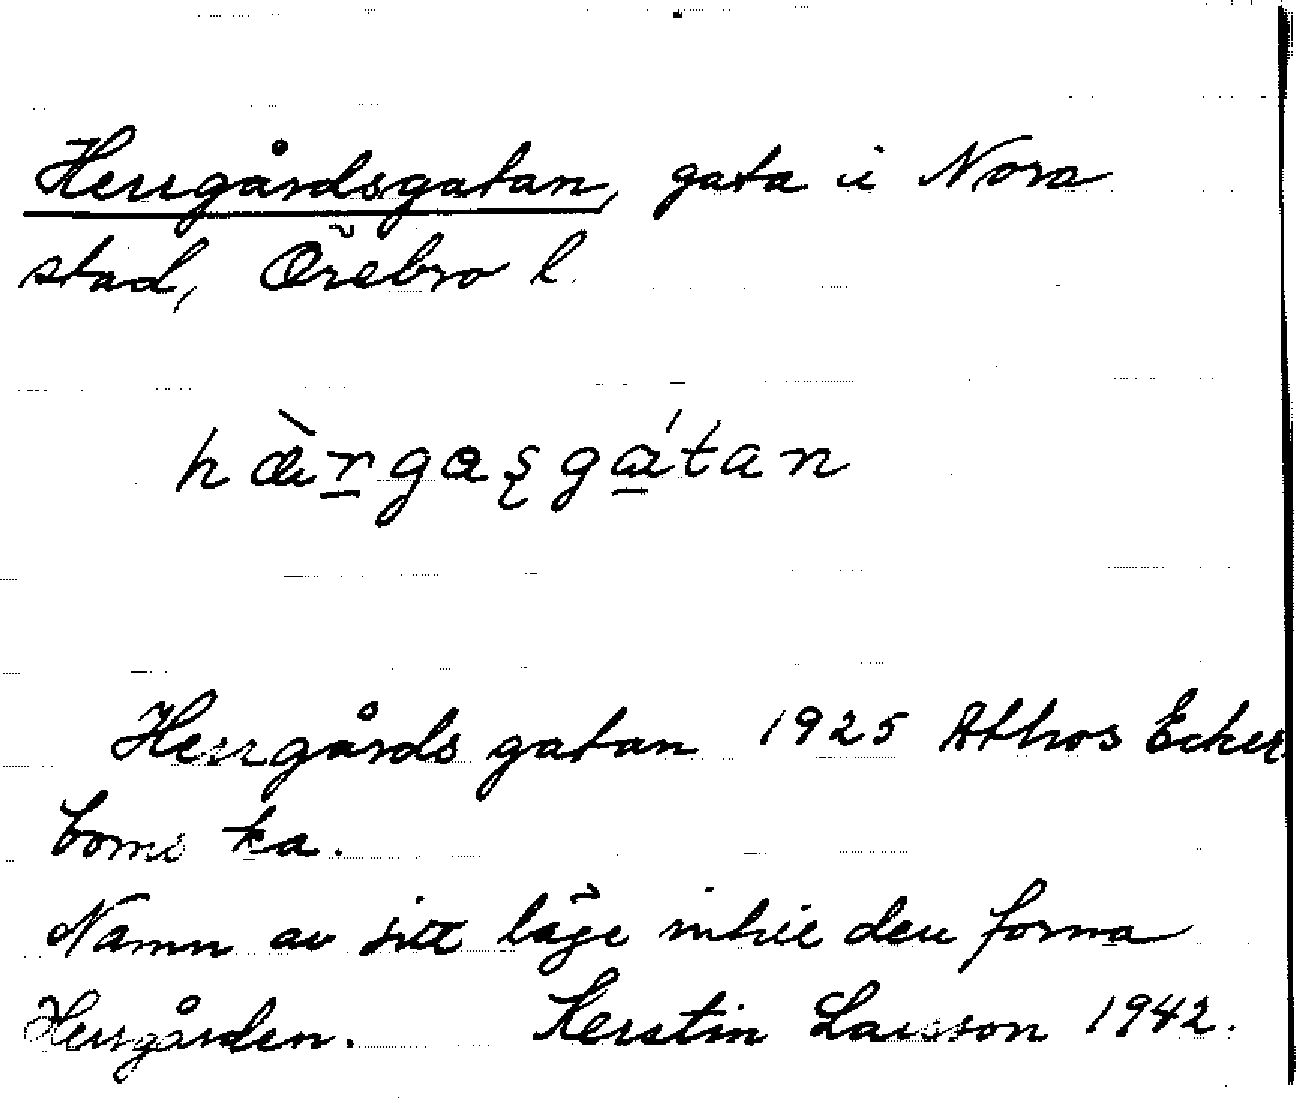 Herrgårdsgatan, gata i Nora
stad, Örebro l.
hæ̀r̲gaʂgá̲tan
Herrgårdsgatan 1925 Athos Ecker
boms ka.
Namn av sitt läge intill den forna
Herrgården. Kerstin Larsson 1942.